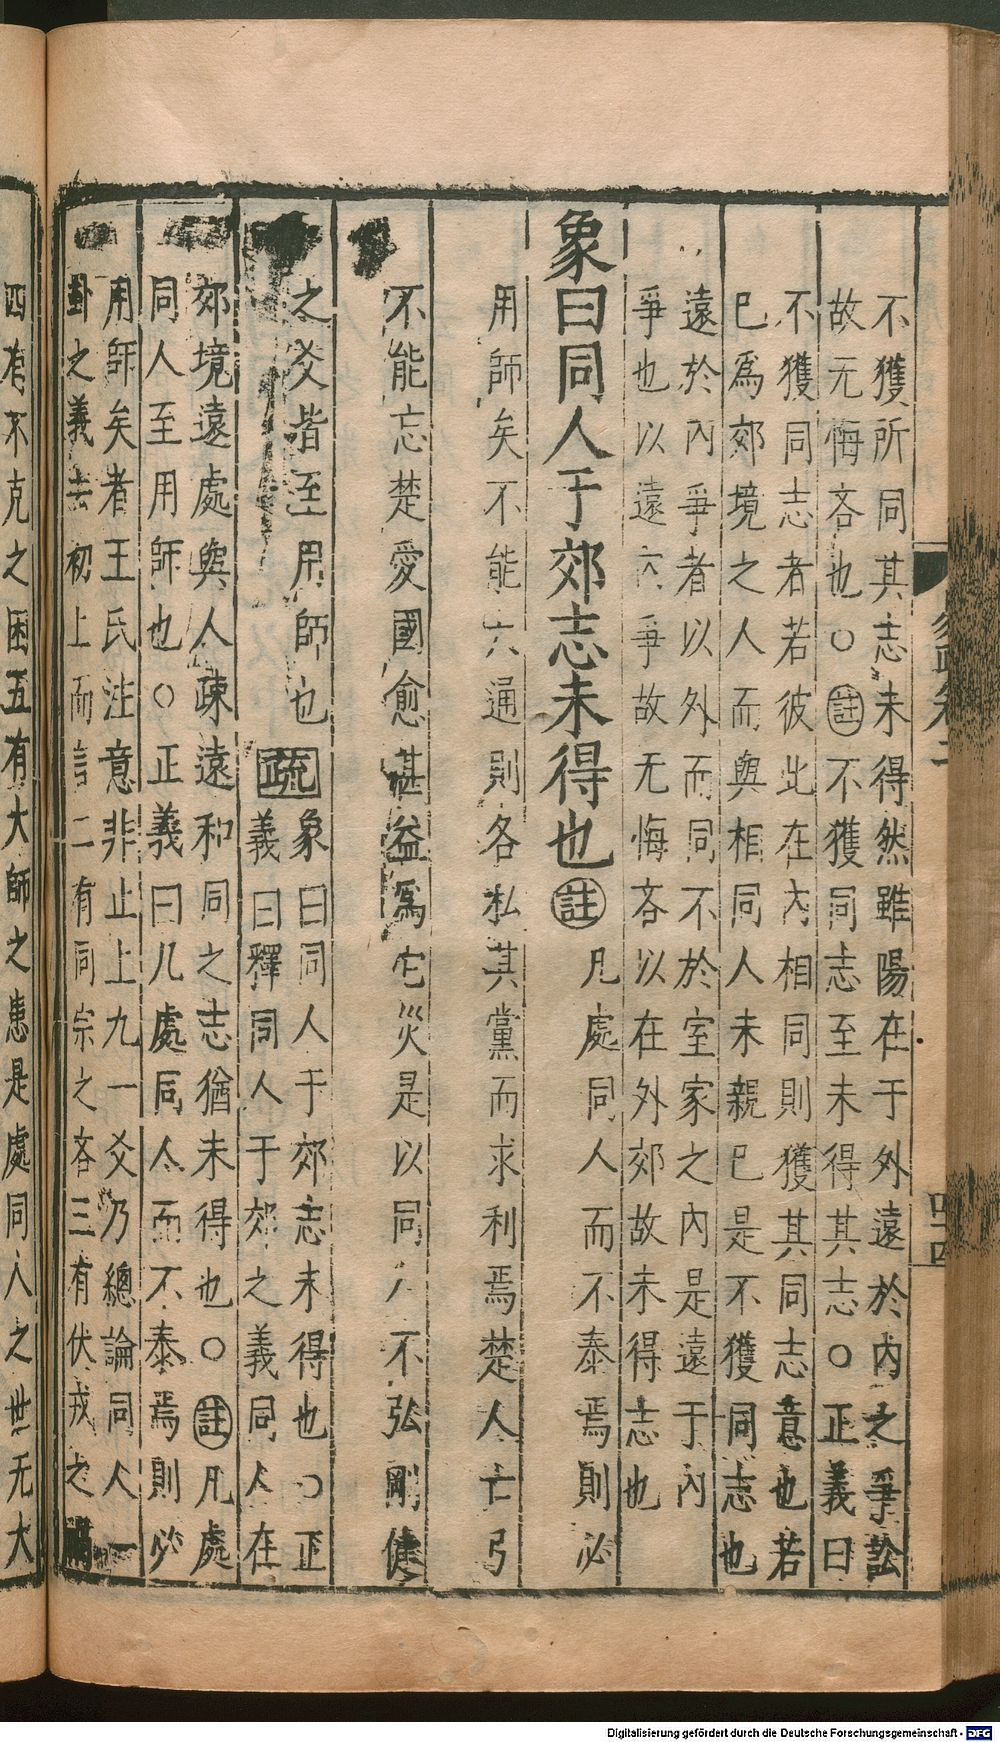 不獲所同其志未得然雖陽在于外遠於內之爭訟
故无悔吝也○註不獲同志至未得其志○正義曰
不獲同志者若彼此在內相同則獲其同志意也若
已爲郊境之人而與相同人未親已是不獲同志也
遠於內爭者以外而同不於室家之內是遠于內
爭也以遠內爭故无悔吝以在外郊故未得志也
象曰同人于郊志未得也註凡處同人而不泰焉則必
用師矣不能大通則各私其黨而求利焉楚人亡弓
不能忘楚愛國愈甚益爲它災是以同人不弘剛健
之爻皆至用師也疏象曰同人于郊志未得也○正
義曰釋同人于郊之義同人在
郊境遠處與人疎遠和同之志猶未得也○註凡處
同人至用師也○正義曰凡處同人而不泰焉則必
用師矣者王氏注意非止上九一爻乃總論同人一
卦之義去初上而言二有同宗之吝三有伏戎之禍
四有不克之困五有大師之患是處同人之世无大
四十四
Digitalisierung gefördert durch die Deutsche Forschungsgemeinschaft - DFG